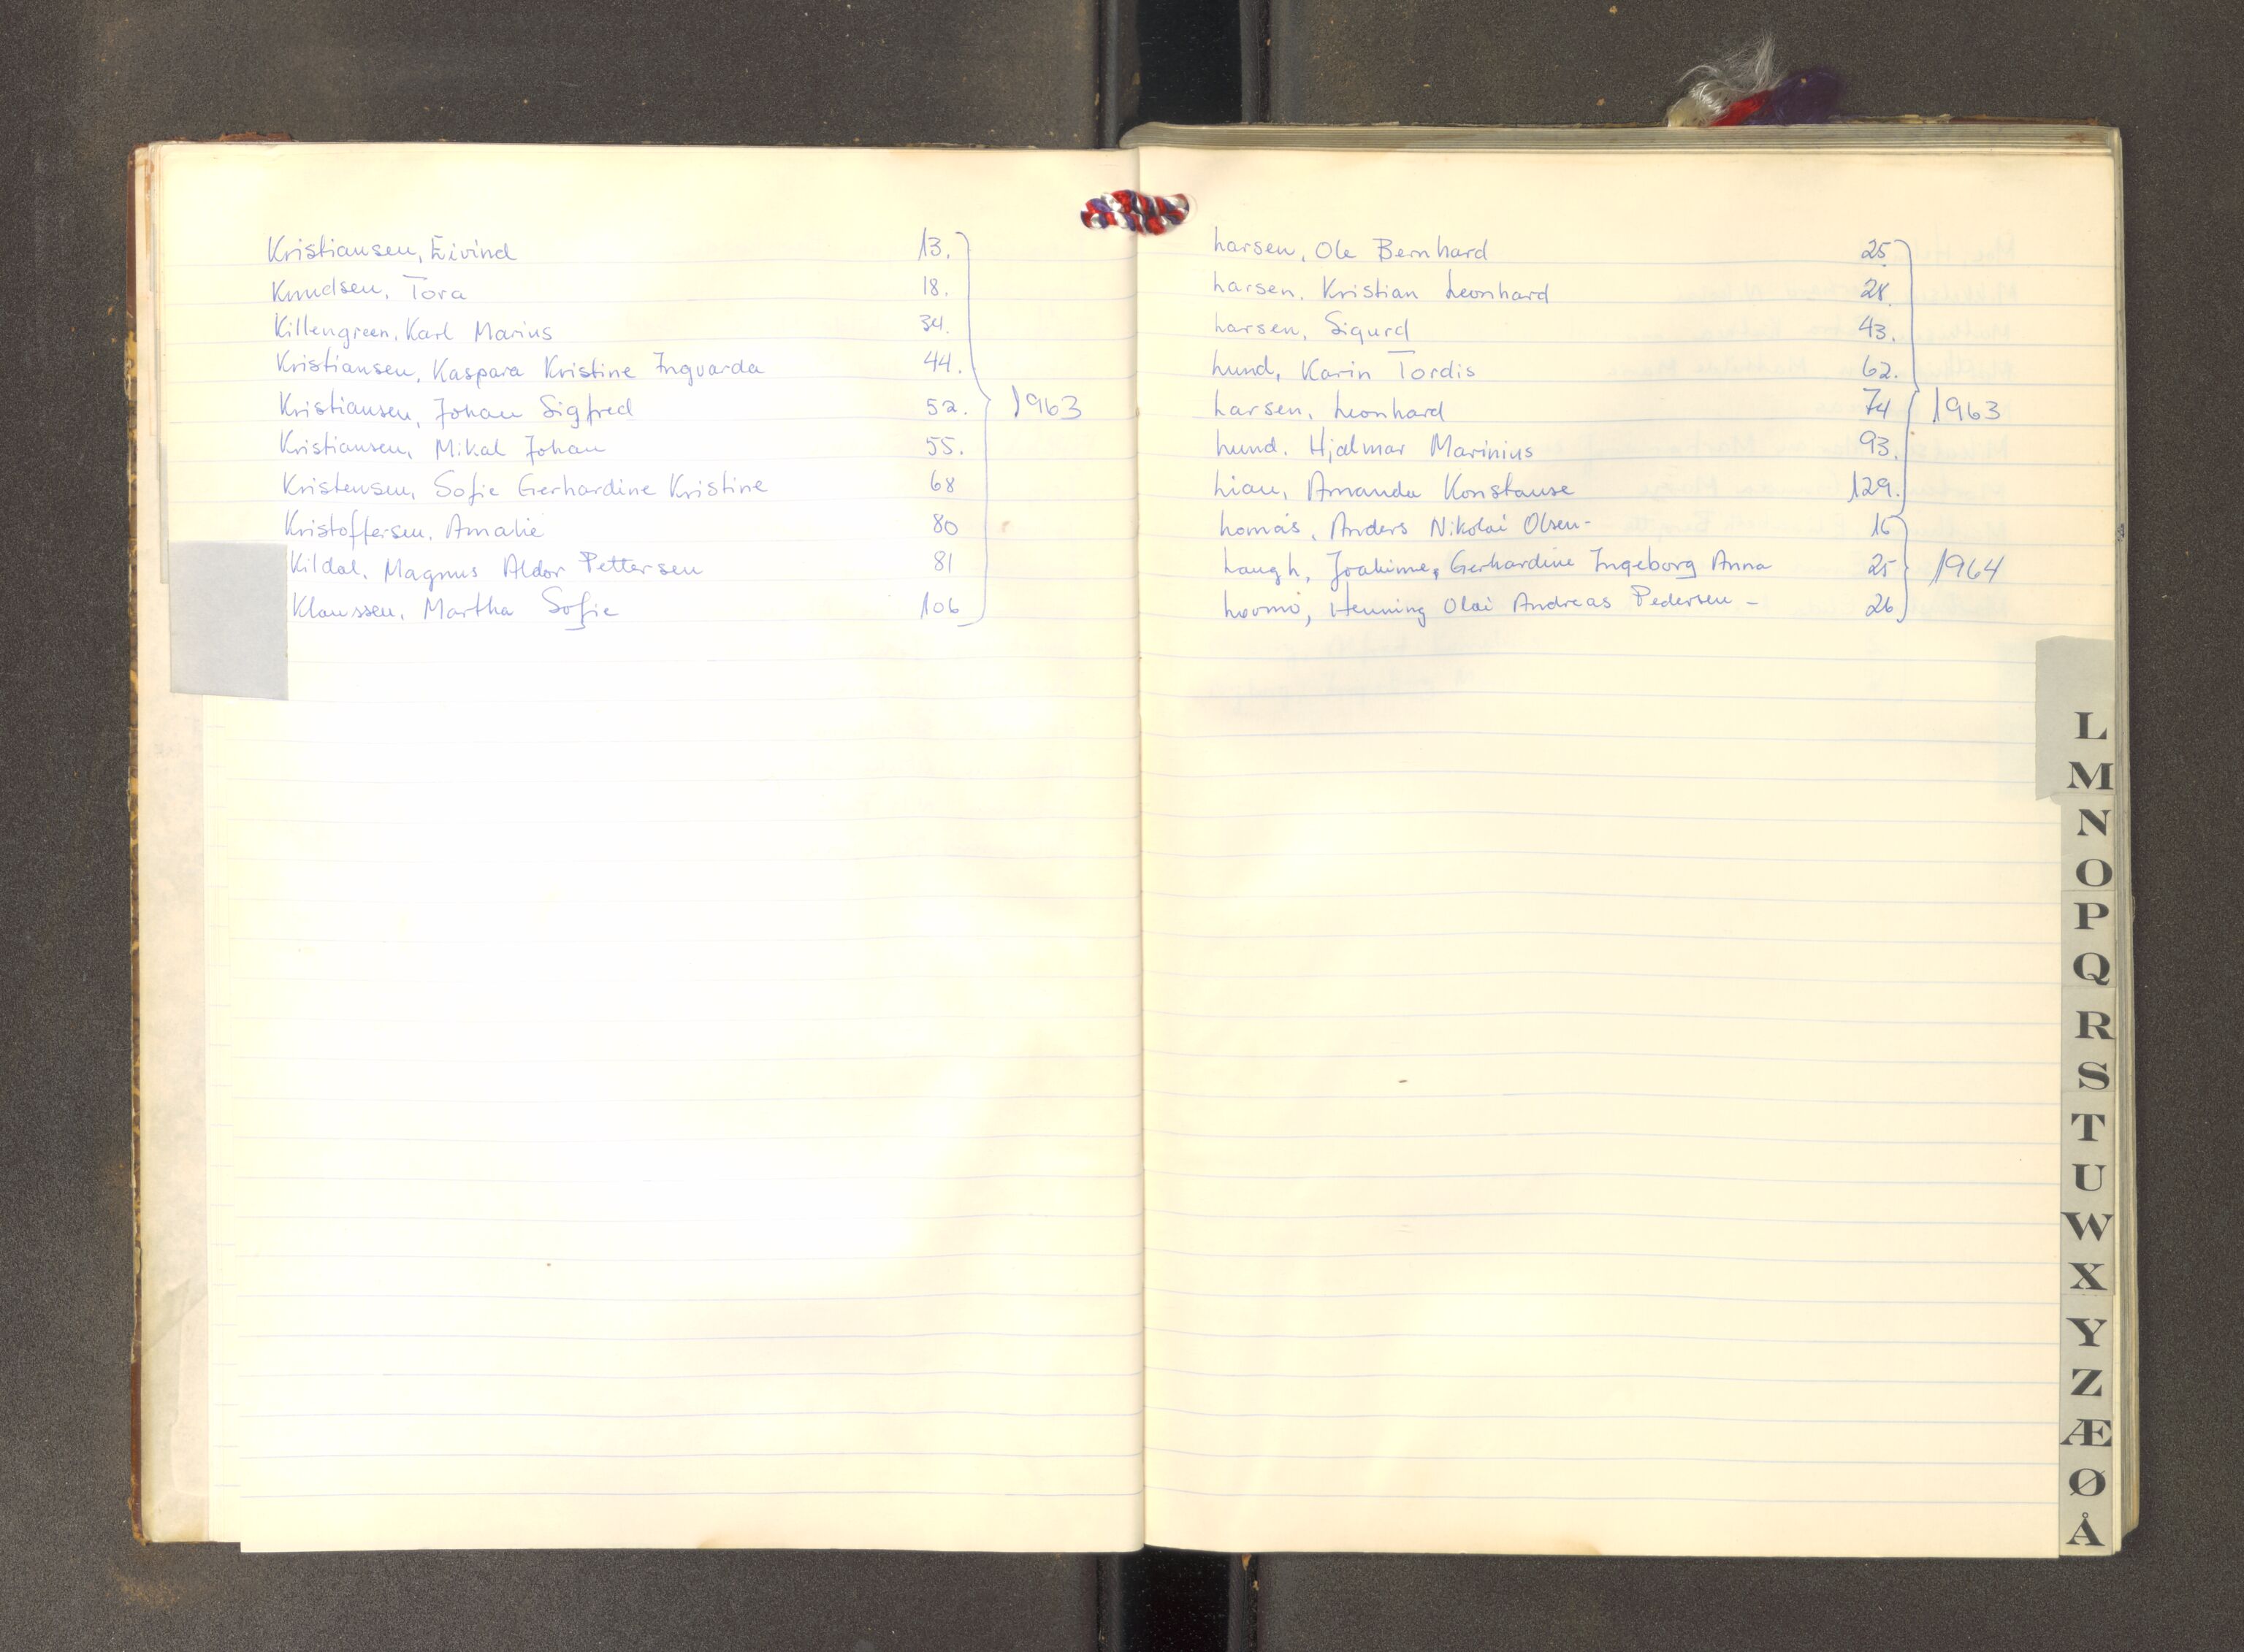 Kristiansen, Eivind 13.
Knudsen, Tora 18.
Killengreen, Karl Marius 34.
Kristiansen, Kaspara Kristine Ingvarda 44.
Kristiansen, Johan Sigfred 52.
Kristiansen, Mikal Johan 55.
Kristensen, Sofie Gerhardine Kristine 68
Kristoffersen, Amalie 80
Kildal, Magnus Aldor Pettersen 81
Klaussen, Martha Sofie 106
1963
Larsen, Ole Bernhard 25.
Larsen, Kristian Leonhard 28.
Larsen, Sigurd 43.
Lund, Karin Tordis 62.
Larsen, Leonhard 74
Lund, Hjalmar Marinius 93.
Lian, Amanda Konstanse 129.
1963
Lomås, Anders Nikolai Olsen- 16
Laugh, Joakime, Gerhardine Ingeborg Anna 25
Lovmo, Henning Olai Andreas Pedersen - 26
1964
L
M
N
O
P
Q
R
S
T
U
W
X
Y
Z
Æ
Ø
Å